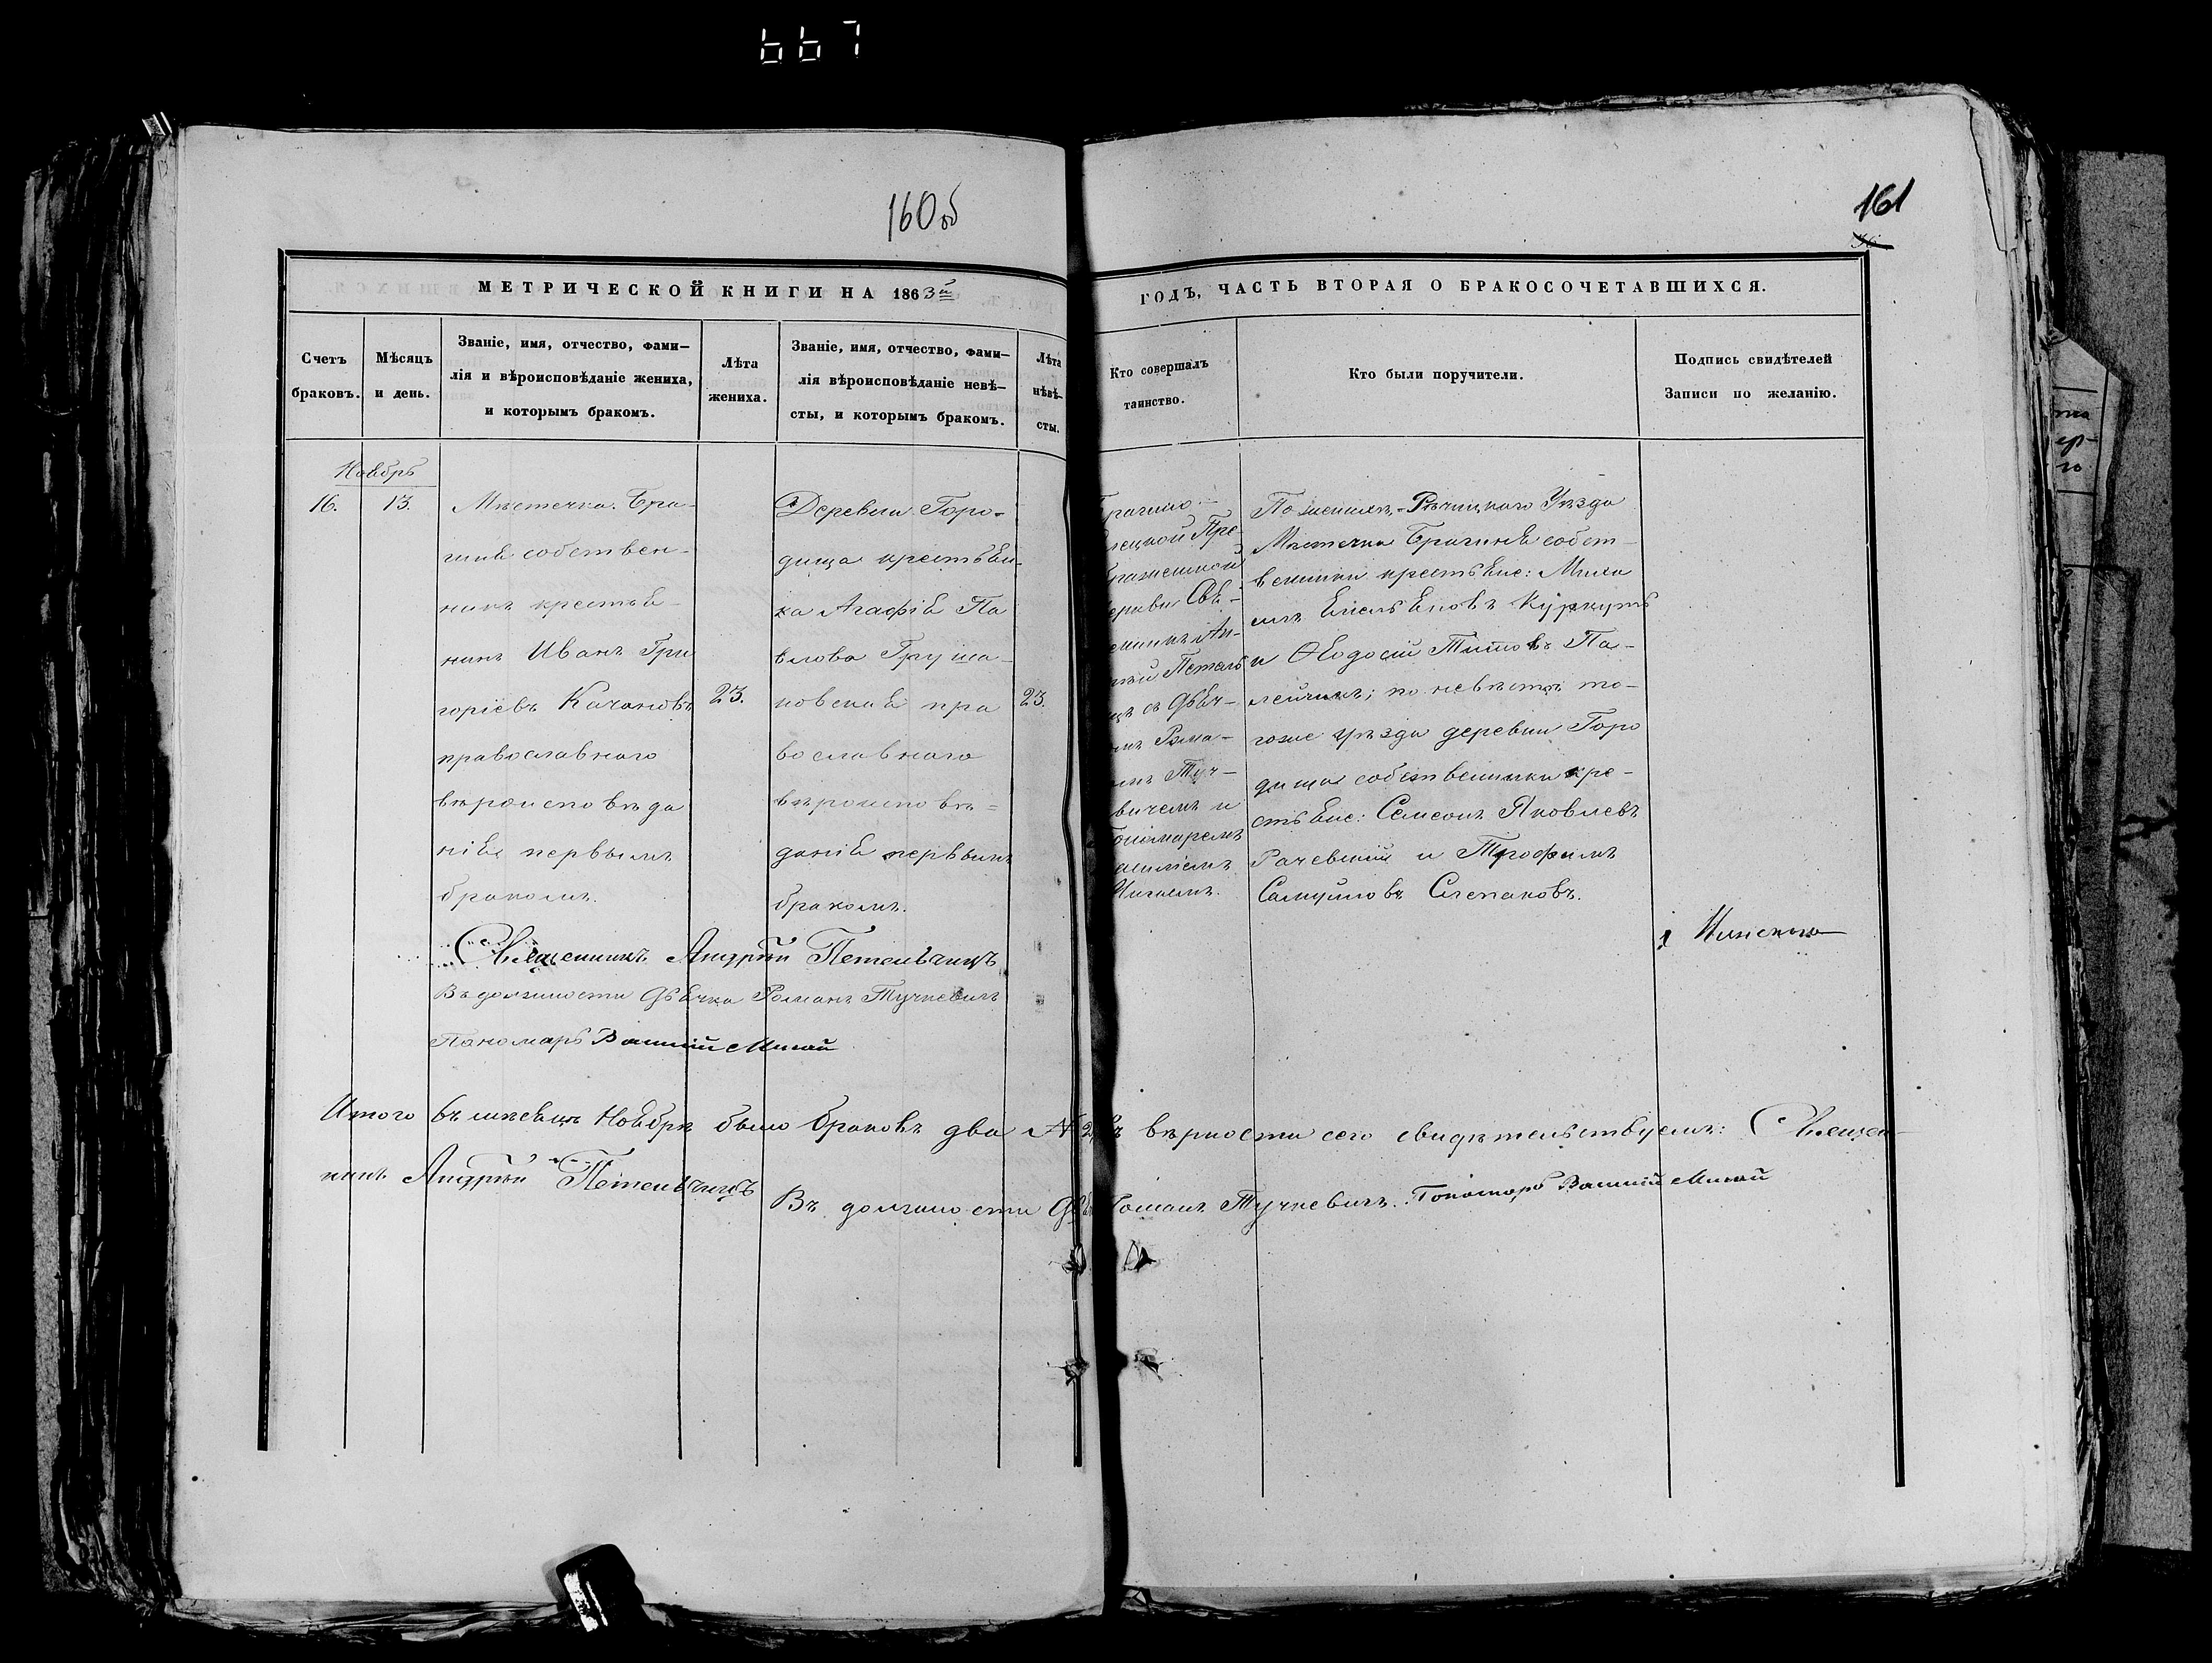 667
160 об
161
МЕТРИЧЕСКОЙ КНИГИ НА 1863й
ГОДЪ, ЧАСТЬ ВТОРАЯ О БРАКОСОЧЕТАВШИХСЯ.
Счетъ
браковъ.
Мѣсяцъ
и день.
Званіе, имя, отчество, фами-
лія и вѣроисповѣданіе жениха,
и которымъ бракомъ.
Лѣта
жениха.
Званіе, имя, отчество, фами-
лія вѣроисповѣданіе невѣ-
сты, и которымъ бракомъ.
Лѣта
нѣвѣ-
сты.
Кто совершалъ
таинство.
Кто были поручители.
Подпись свидѣтелей
Записи по желанію.
Ноябрь
16.
13.
Мѣстечка Бра-
гиня собствен-
никъ крестья-
нинъ Иванъ Гри
горіевъ Качановъ
православнаго
вѣроисповѣда
нія первымъ
бракомъ.
23.
Деревни Горо-
дища крестьян-
ка Агафія Па
влова Груша-
новская пра
вославнаго
вѣроисповѣ-
данія первымъ
бракомъ.
23.
Брагино-
лецкой Пре-
ображенской
Церкви Свя-
щенникъ Ан-
дрей Петель
чицъ съ дьяч-
омъ Рома-
омъ Туч-
вичемъ и
Пономаремъ
По женихѣ,-Рѣчицкаго Уѣзда
Мѣстечка Брагиня собст-
венники крестьяне: Миха
илъ Емельяновъ Куркутъ
и Ѳеодосій Титовъ Па-
лейчикъ; по невѣстѣ то-
гоже уѣзда деревни Горо
дища собственники кре-
стьяне: Семеонъ Яковлевъ
Рачевскій и Трофимъ
Самуиловъ Слепаковъ.
Священникъ Андрей Петельчицъ
Въ должности Дьячка Романъ Тучкевичъ
Пономарь
Итого въ мѣсяцѣ Ноябрѣ было браковъ два № 2, Въ вѣрности сего свидѣтельствуемъ: Священ-
никъ Андрей Петельчицъ
Въ должности Дья Романъ Тучкевичъ. Пономарь